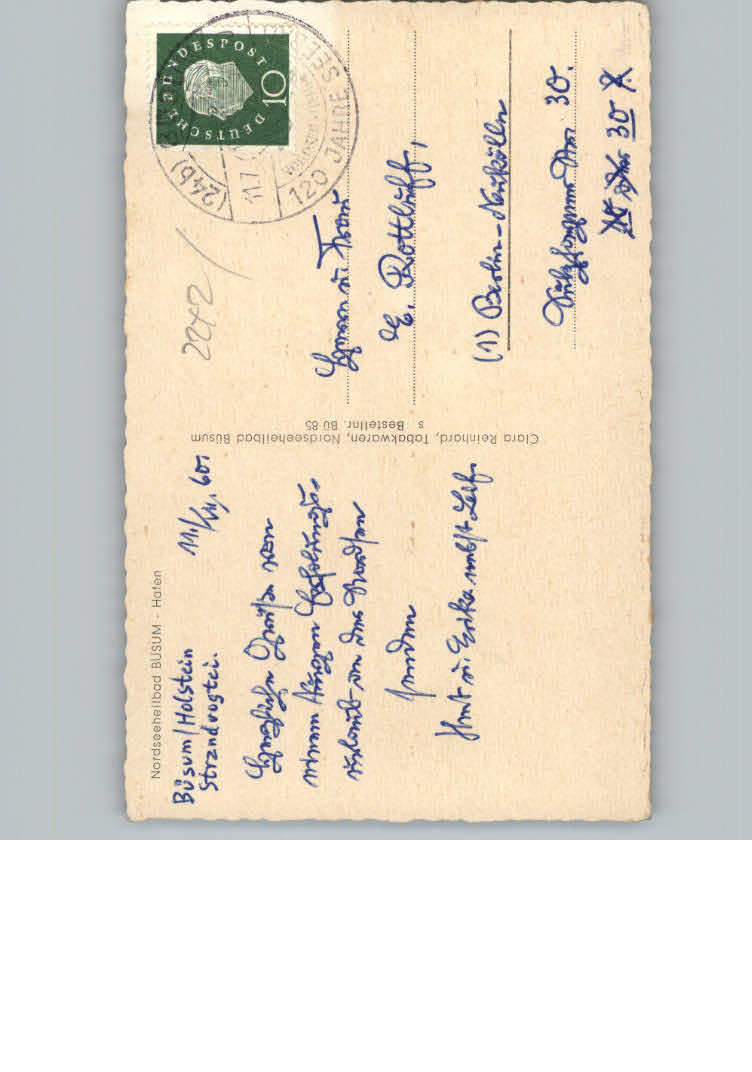 Nordseeheilbad BÜSUM - Hafen
Büsum/Holstein
Strandvogtei.
11./VII. 60.
Herzliche Grüße von
einem kurzen Erholungs-
urlaub an der Nordsee
senden
Kurt u. Erika nebst
Clara Reinhard, Tabakwaren, Nordseeheilbad Büsum
s Bestellnr. Bü 85
2242
DEUTSCHE BUNDESPOST
10
(24b)
11.7
120 JAHRE SEE
Herrn u. Frau
E. Rottluff,
(1) Berlin-Neukölln
30.
30